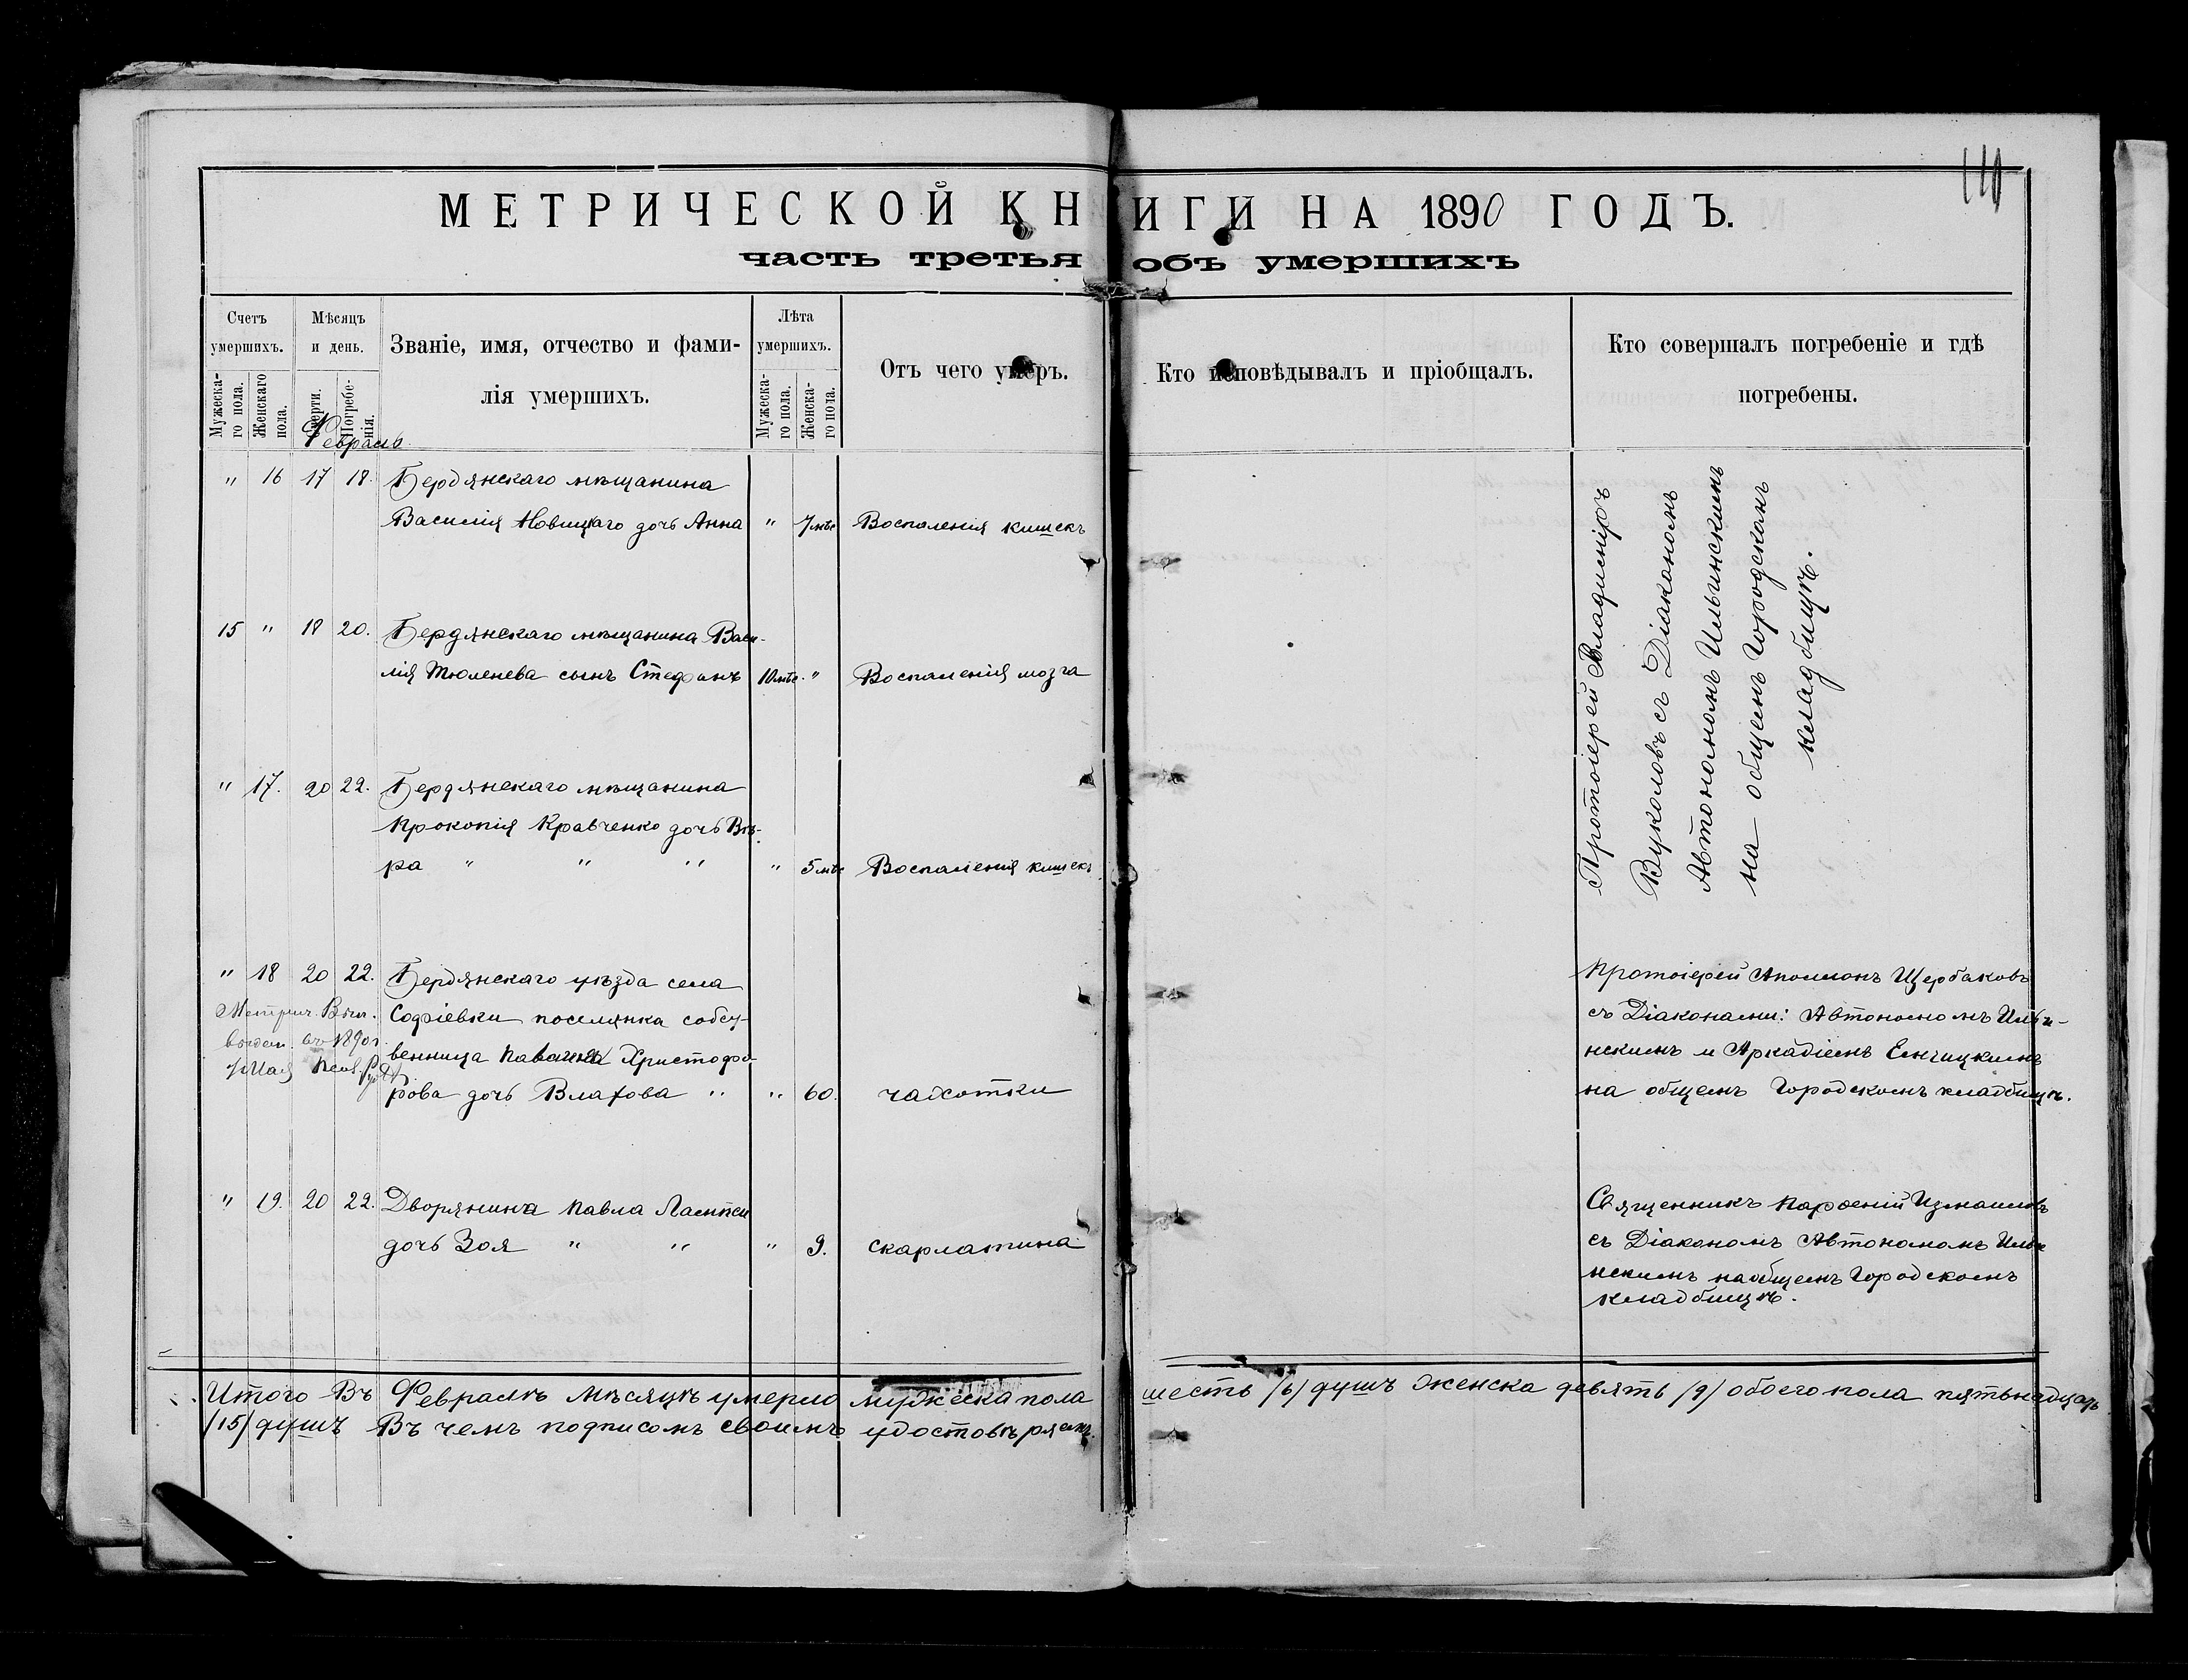 110
МЕТРИЧЕСКОЙ КНИГИ НА 1890 ГОДЪ.
часть третья объ умершихъ
Счетъ умершихъ.
Мужескаго пола.
Женскаго пола.
Мѣсяцъ и день.
Смерти.
Погребенія.
Званіе, имя, отчество и фамилія умершихъ.
Лѣта умершихъ.
Мужескаго пола.
Женскаго пола.
Отъ чего умеръ.
Кто исповѣдывалъ и пріобщалъ.
Кто совершалъ погребеніе и гдѣ
погребены.
Февраль
" 16 17 18. Бердянскаго мѣщанина
Василія Новицкаго дочь Анна " 7 мѣс Воспаленія кишекъ
15 " 18 20. Бердянскаго мѣщанина Васи-
лія Тюленева сынъ Стефанъ 10 мѣс. " Воспаленія мозга
" 17. 20 22. Бердянскаго мѣщанина
Прокопія Кравченко дочь Вѣ-
ра " " " " 5 мѣс Воспаленія кишекъ
Протоіерей Владиміръ
Вуколовъ съ Діакономъ
Автономомъ Ильинскимъ
на общемъ Городскомъ
кладбищѣ.
" 18 20 22. Бердянскаго уѣзда села
Софіевки поселянка собст-
венница Христофо-
рова дочь Влахова " " 60. чахотки
Метрич. Вып.
выдан. въ 1890 г.
Мая
Протоіерей Аполлонъ Щербаковъ
съ Діаконами: Автономомъ Ильи-
нскимъ и Аркадіемъ
на общемъ Городскомъ кладбищѣ.
" 19. 20 22. Дворянина Павла
дочь Зоя " " " 9. скарлатина
Священникъ Парфеній Измаиловъ
съ Діакономъ Автономомъ Ильи
нскимъ на общемъ Городскомъ
кладбищѣ.
Итого Въ Февралѣ мѣсяцѣ умерло мужеска пола шесть /6/ душъ женска девять /9/ обоего пола пятьнадцать
/15/ душъ Въ чемъ подписомъ своимъ удостовѣряемъ.